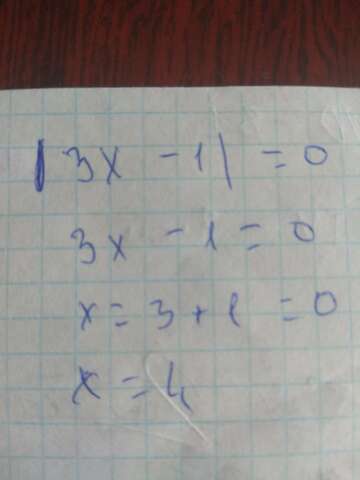 |3x - 1| = 0
3x - 1 = 0
x = 3 + 1 = 0
x = 4